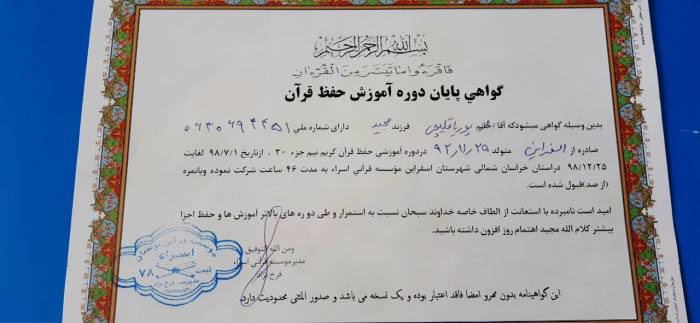 بسم الله الرحمن الرحیم
فاقرءوا ما تیسر من القرءان
گواهي پایان دوره آموزش حفظ قرآن
بدین وسیله گواهی میشودکه آقا / خانم پوریا قلیچی فرزند مجید دارای شماره ملي
صادره از اسفراین متولد دردوره آموزشی حفظ قرآن کریم نیم جزء ۳۰ ، ازتاریخ ۹۸/۷/۱ لغایت
۹۸/۱۲/۲۵ دراستان خراسان شمالی شهرستان اسفراین مؤسسه قرآنی اسراء به مدت ۴۶ ساعت شرکت نموده وبانمره
(ازصد)قبول شده است.
امید است نامبرده با استعانت از الطاف خاصه خداوند سبحان نسبت به استمرار و طی دوره های بالاتر آموزش ها و حفظ اجزا
بیشتر کلام الله مجید اهتمام روز افزون داشته باشید.
ومن الله التوفیق
مدیرموسسه قرآنی اسراء
فرخ نژاد
اسراء
ثبت ۷۸
این گواهینامه بدون مهرو امضا فاقد اعتبار بوده و یک نسخه می باشد و صدور المثنی محدودیت دارد.